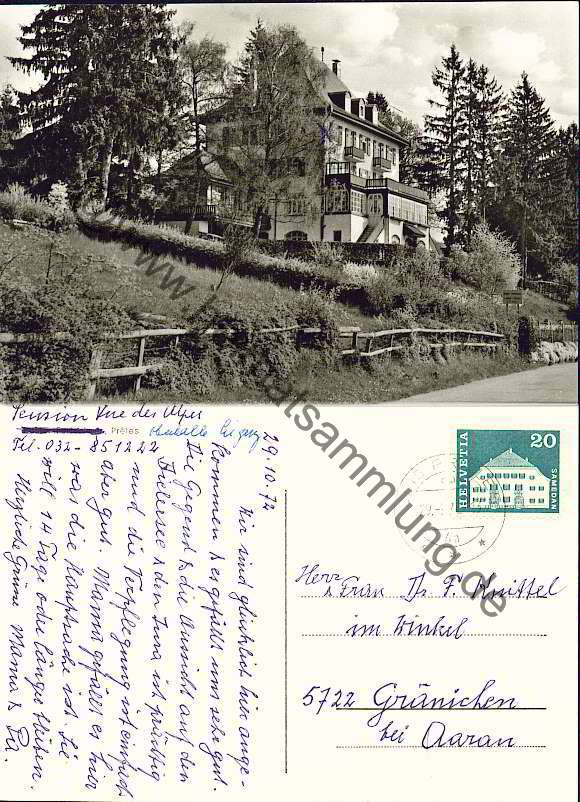 Pension Vue des Alpes
Prêles
Tel. 032 - 85 12 22
29.10.72
Wir sind glücklich hier ange-
kommen & es gefällt uns sehr gut.
Die Gegend & die Aussicht auf den
Bielersee & den Jura ist prächtig
und die Verpflegung ist einfach
aber gut. Mama gefällt es hier
was die Hauptsache ist. Sie
will 14 Tage oder länger bleiben.
Herzliche Grüsse Mama &
HELVETIA
20
SAMEDAN
Herr
& Frau Dr F. Knittel
im Winkel
5722 Gränichen
bei Aarau
www.heimatsammlung.de